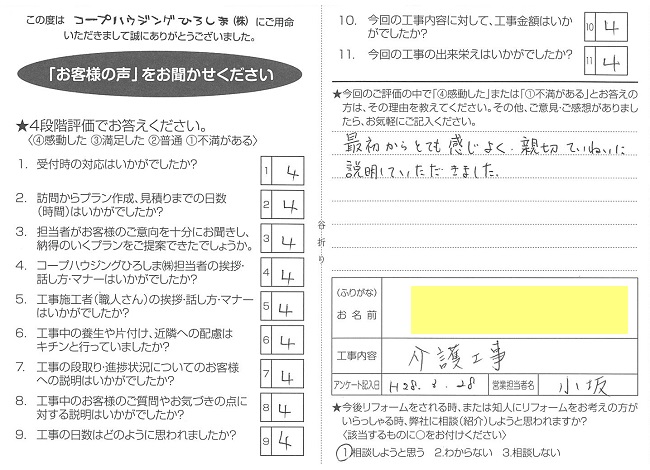 この度は コープハウジングひろしま(株) にご用命
いただきまして誠にありがとうございました。
「お客様の声」をお聞かせください
★4段階評価でお答えください。
〈④感動した ③満足した ②普通 ①不満がある〉
1. 受付時の対応はいかがでしたか? 1 4
2. 訪問からプラン作成、見積りまでの日数
(時間)はいかがでしたか? 2 4
3. 担当者がお客様のご意向を十分にお聞きし、
納得のいくプランをご提案できたでしょうか。 3 4
4. コープハウジングひろしま㈱担当者の挨拶・
話し方・マナーはいかがでしたか? 4 4
5. 工事施工者(職人さん)の挨拶・話し方・マナー
はいかがでしたか? 5 4
6. 工事中の養生や片付け、近隣への配慮は
キチンと行っていましたか? 6 4
7. 工事の段取り・進捗状況についてのお客様
への説明はいかがでしたか? 7 4
8. 工事中のお客様のご質問やお気づきの点に
対する説明はいかがでしたか? 8 4
9. 工事の日数はどのように思われましたか? 9 4
谷折り
10. 今回の工事内容に対して、工事金額はいか
がでしたか? 10 4
11. 今回の工事の出来栄えはいかがでしたか? 11 4
★今回のご評価の中で「④感動した」または「①不満がある」とお答えの
方は、その理由を教えてください。その他、ご意見・ご感想がありまし
たら、お気軽にご記入ください。
最初からとても感じよく、親切ていねいに
説明していただきました。
(ふりがな)
お名前
工事内容 介護工事
アンケート記入日 H28.3.28 営業担当者名 小坂
★今後リフォームをされる時、または知人にリフォームをお考えの方が
いらっしゃる時、弊社に相談(紹介)しようと思われますか?
〈該当するものに○をお付けください〉
①相談しようと思う 2.わからない 3.相談しない